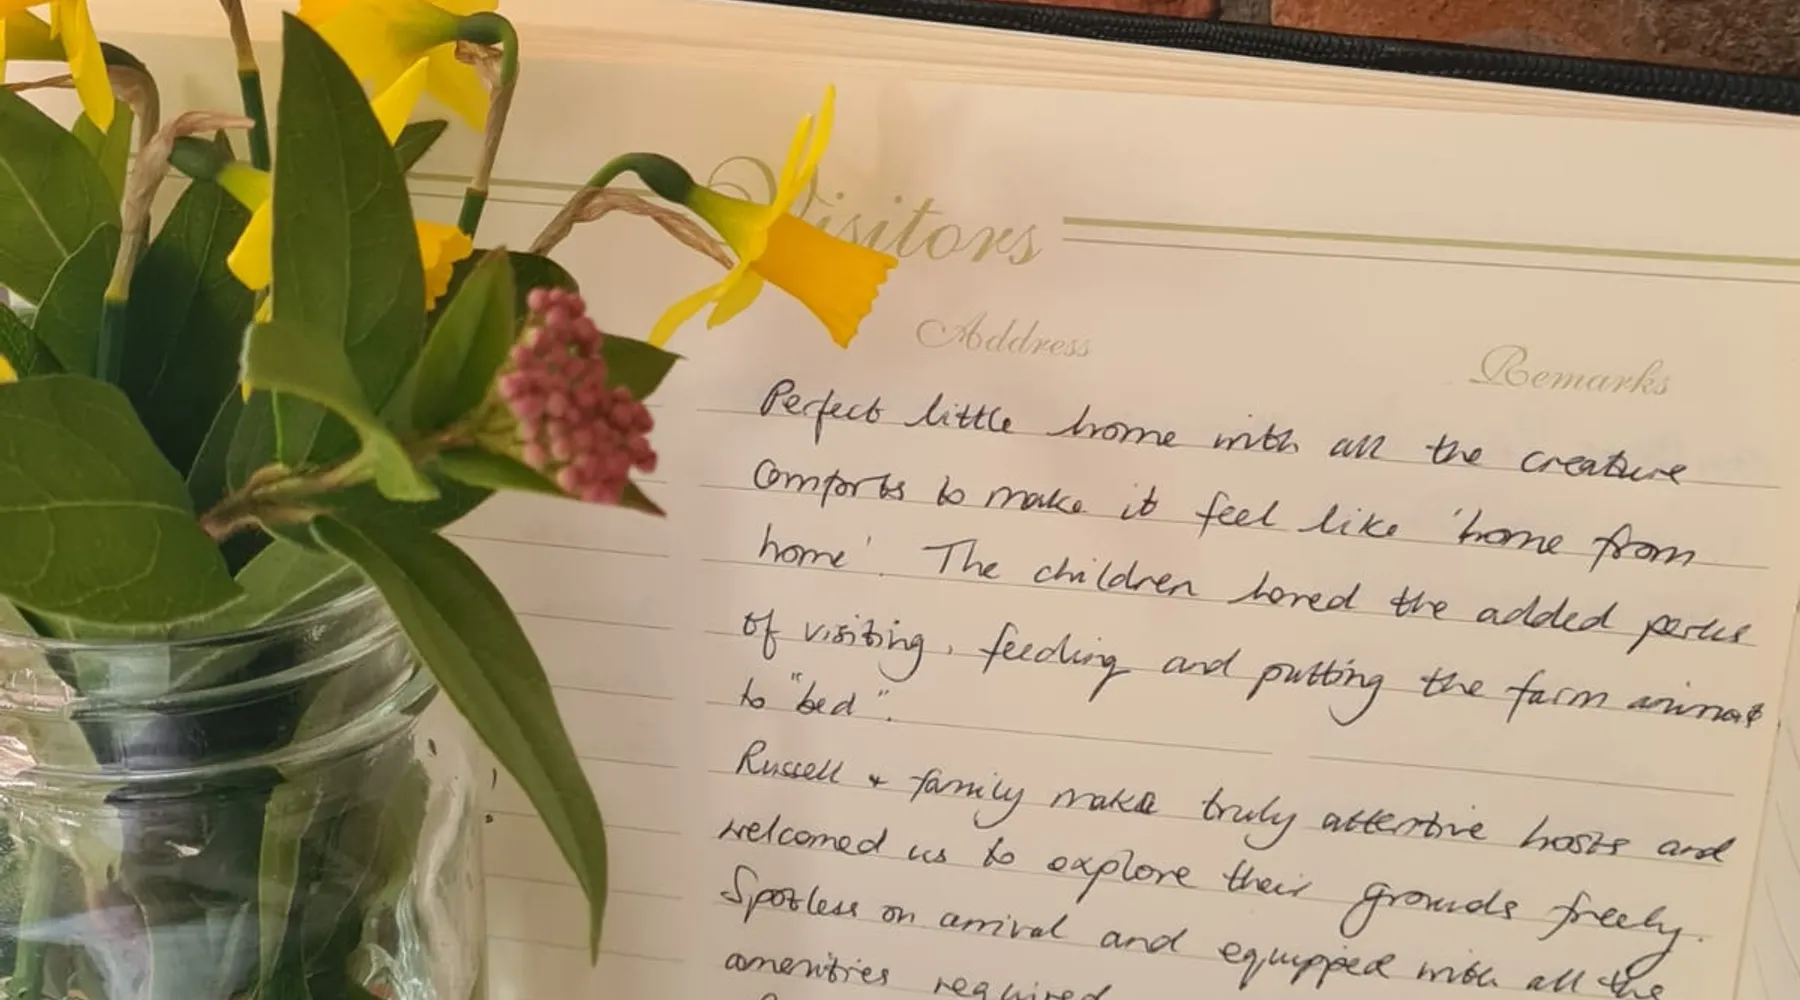 Visitors
Address Remarks
Perfect little home with all the creature
comforts to make it feel like 'home from
home'. The children loved the added perks
of visiting, feeding and putting the farm animals
to "bed".
Russell & family make truly attentive hosts and
welcomed us to explore their grounds freely.
Spotless on arrival and equipped with all the
amenities required